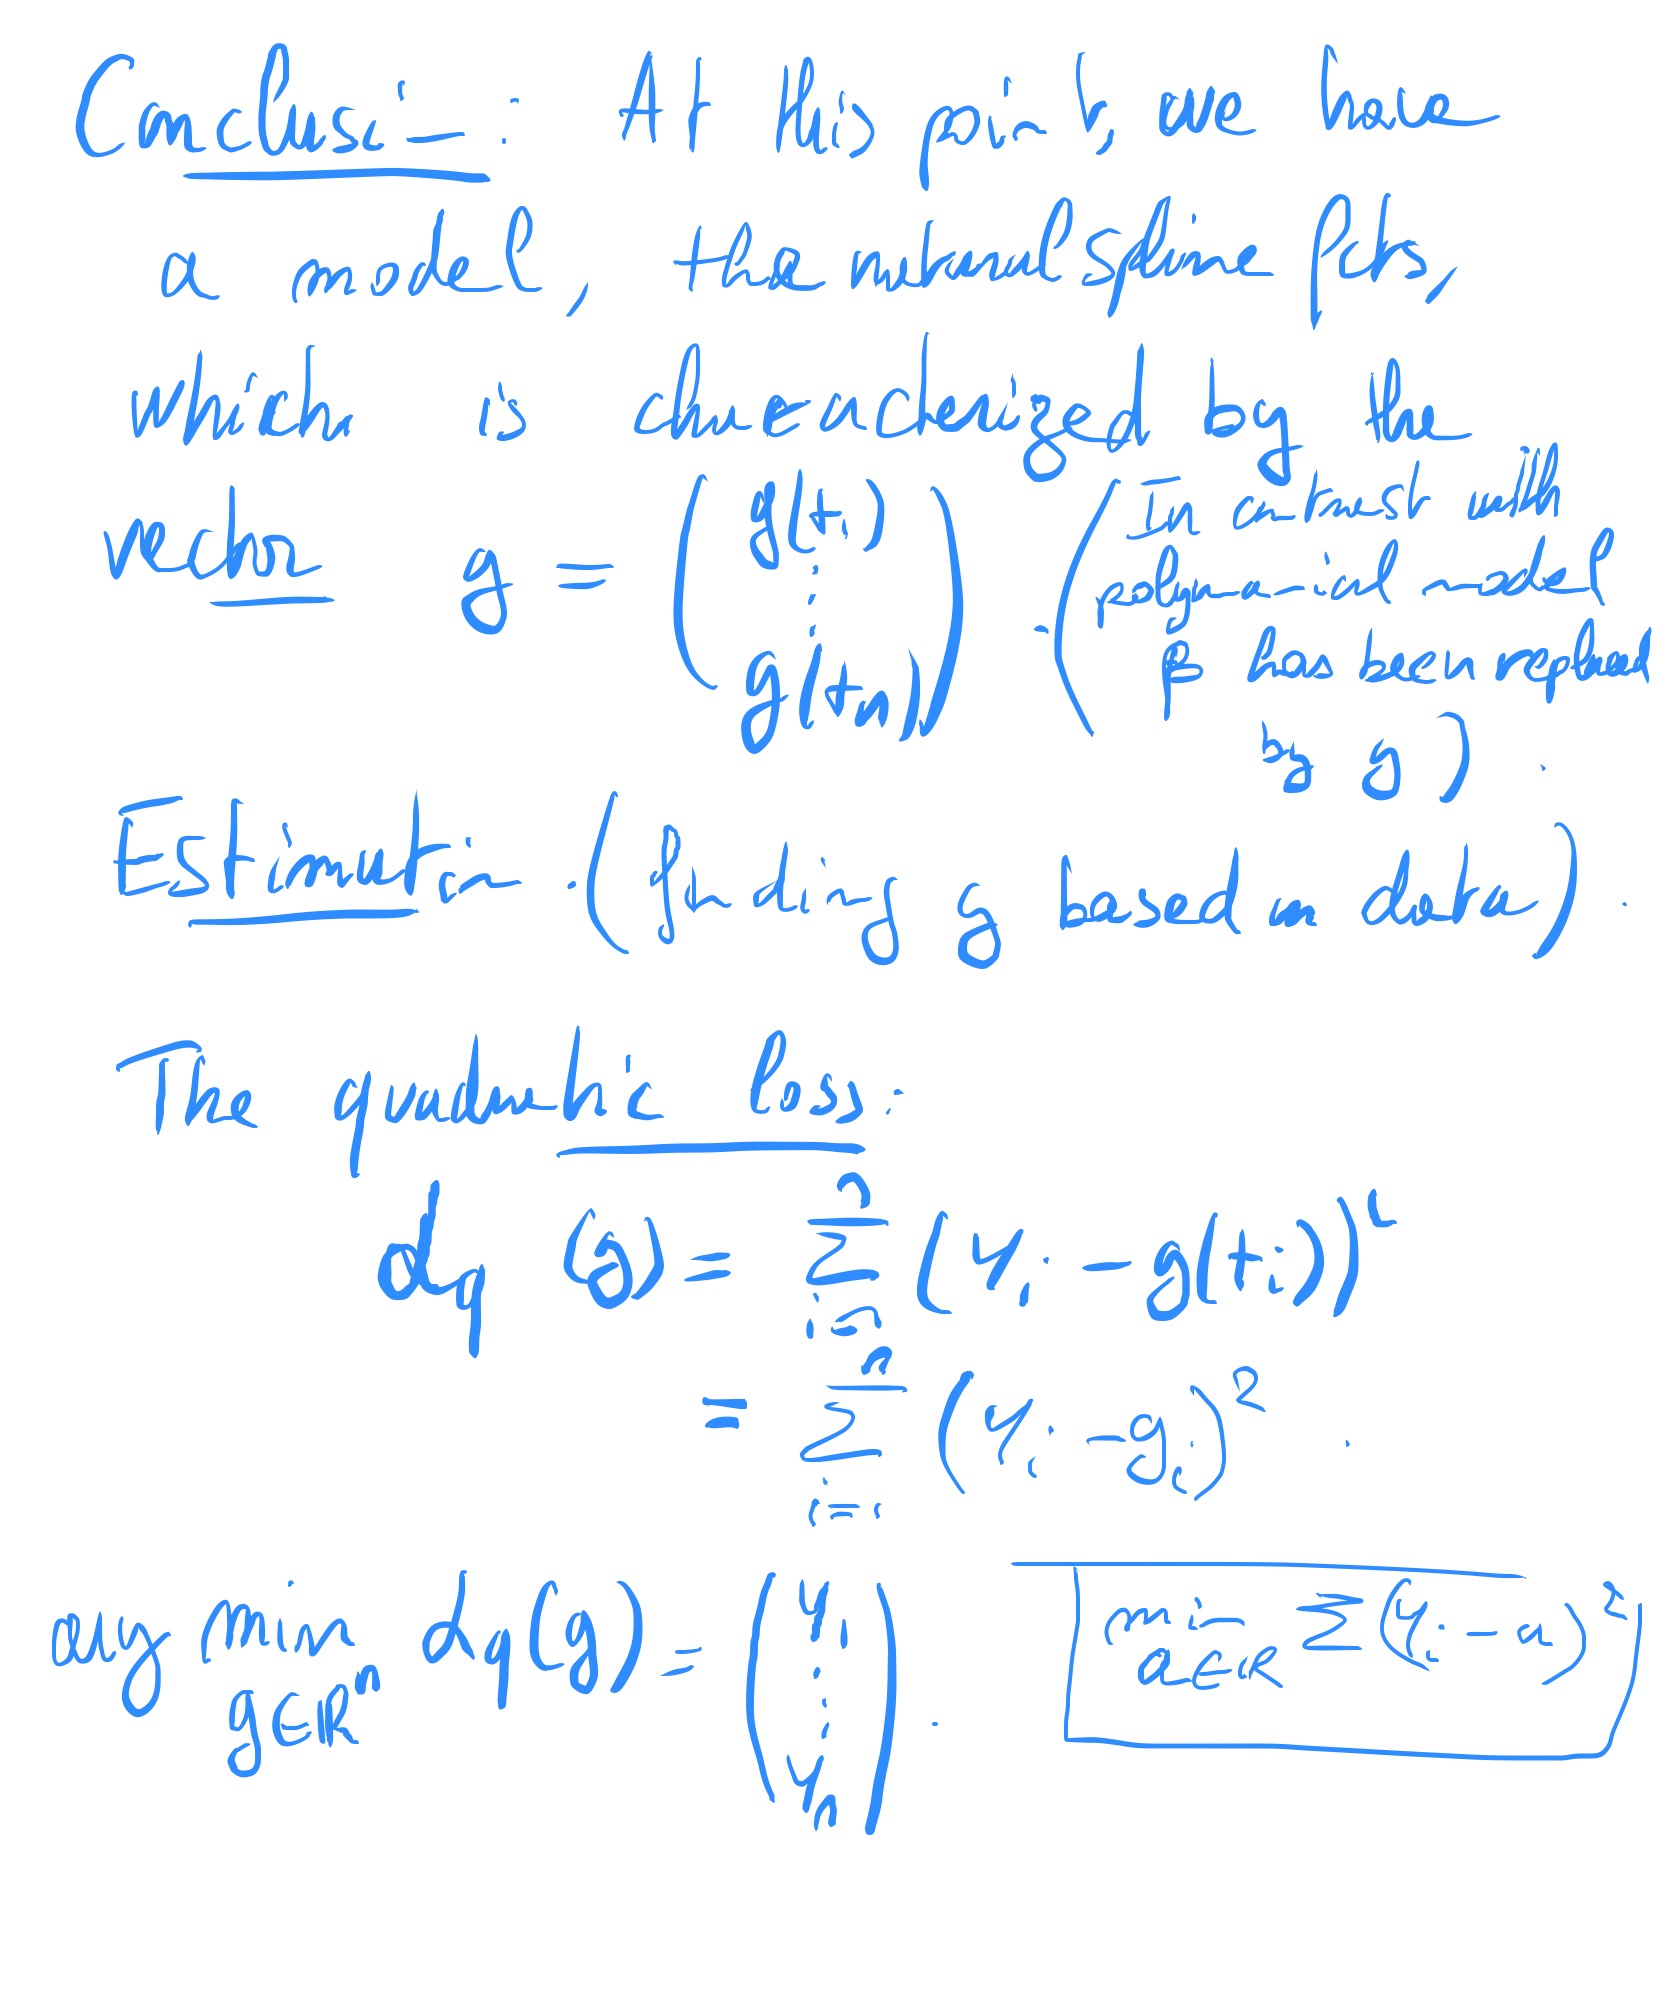 Conclusion: At this point, we have
a model, the natural spline fcts,
which is characterized by the
vector g = (g(t₁) ⋮ g(tₙ))
(In contrast with
polynomial model
β has been replaced
by g).
Estimation. (finding g based on data).
The quadratic loss.
d_q (g) = Σ_{i=1}^{n} (Y_i - g(t_i))²
= Σ_{i=1}^{n} (Y_i - g_i)².
arg min_{g∈ℝⁿ} d_q(g) = (Y₁ ⋮ Yₙ).
min_{a∈ℝ} Σ(Y_i - a)²